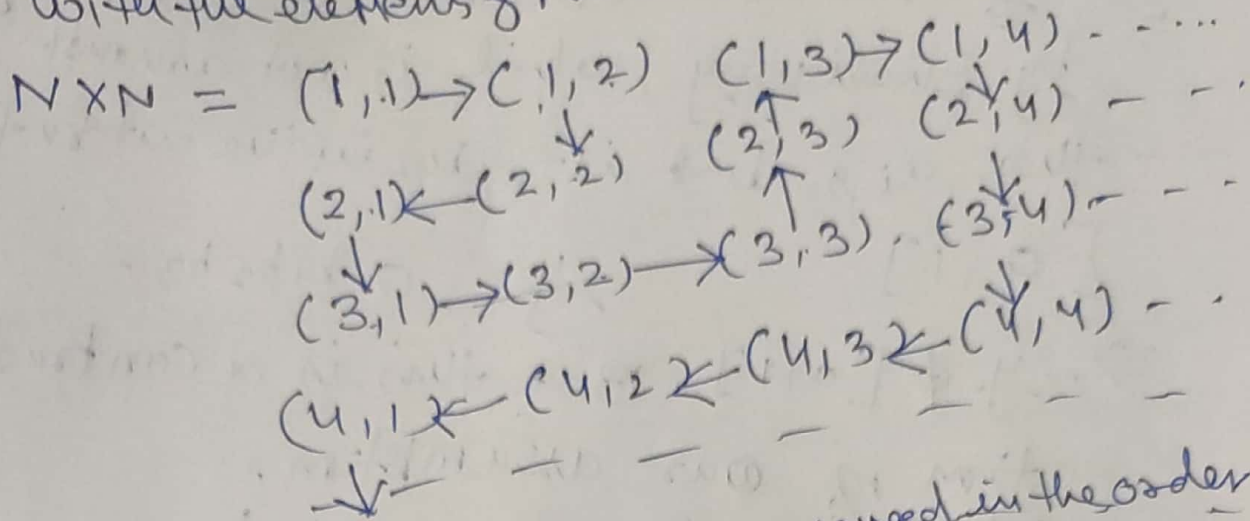 with the elements of
N×N = (1,1)→(1,2) (1,3)→(1,4) - - ....
↓ ↑ ↓
(2,1)←(2,2) (2,3) (2,4) - - .
↓ ↑ ↓
(3,1)→(3,2)→(3,3). (3,4) - - -
↓
(4,1)←(4,2)←(4,3)←(4,4) - .
↓ - - - - - - -
in the order